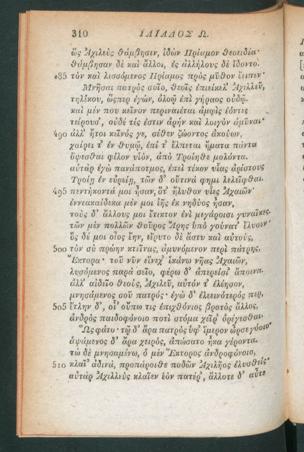 310 ΙΛΙΑΔΟΣ Ω.
ὣς Ἀχιλεὺς θάμβησεν, ἰδὼν Πρίαμον θεοειδέα·
θάμβησαν δὲ καὶ ἄλλοι, ἐς ἀλλήλους δὲ ἴδοντο.
485 τὸν καὶ λισσόμενος Πρίαμος πρὸς μῦθον ἔειπεν·
Μνῆσαι πατρὸς σοῖο, θεοῖς ἐπιείκελ' Ἀχιλλεῦ,
τηλίκου, ὥσπερ ἐγών, ὀλοῷ ἐπὶ γήραος οὐδῷ.
καὶ μέν που κεῖνον περιναιέται ἀμφὶς ἐόντες
τείρουσ', οὐδέ τίς ἐστιν ἀρὴν καὶ λοιγὸν ἀμῦναι·
490 ἀλλ' ἤτοι κεῖνός γε, σέθεν ζώοντος ἀκούων,
χαίρει τ' ἐν θυμῷ, ἐπί τ' ἔλπεται ἤματα πάντα
ὄψεσθαι φίλον υἱόν, ἀπὸ Τροίηθε μολόντα.
αὐτὰρ ἐγὼ πανάποτμος, ἐπεὶ τέκον υἷας ἀρίστους
Τροίῃ ἐν εὐρείῃ, τῶν δ' οὔτινά φημι λελεῖφθαι.
495 πεντήκοντά μοι ἦσαν, ὅτ' ἤλυθον υἷες Ἀχαιῶν·
ἐννεακαίδεκα μέν μοι ἰῆς ἐκ νηδύος ἦσαν,
τοὺς δ' ἄλλους μοι ἔτικτον ἐνὶ μεγάροισι γυναῖκες.
τῶν μὲν πολλῶν θοῦρος Ἄρης ὑπὸ γούνατ' ἔλυσεν·
ὃς δέ μοι οἶος ἔην, εἴρυτο δὲ ἄστυ καὶ αὐτούς,
500 τὸν σὺ πρώην κτεῖνας, ἀμυνόμενον περὶ πάτρης,
Ἕκτορα· τοῦ νῦν εἵνεχ' ἱκάνω νῆας Ἀχαιῶν,
λυσόμενος παρὰ σεῖο, φέρω δ' ἀπερείσι' ἄποινα.
ἀλλ' αἰδεῖο θεούς, Ἀχιλεῦ, αὐτόν τ' ἐλέησον,
μνησάμενος σοῦ πατρός· ἐγὼ δ' ἐλεεινότερός περ,
505 ἔτλην δ', οἷ' οὔπω τις ἐπιχθόνιος βροτὸς ἄλλος,
ἀνδρὸς παιδοφόνοιο ποτὶ στόμα χεῖρ' ὀρέγεσθαι.
Ὣς φάτο· τῷ δ' ἄρα πατρὸς ὑφ' ἵμερον ὦρσε γόοιο·
ἁψάμενος δ' ἄρα χειρός, ἀπώσατο ἦκα γέροντα.
τὼ δὲ μνησαμένω, ὁ μὲν Ἕκτορος ἀνδροφόνοιο,
510 κλαῖ' ἀδινά, προπάροιθε ποδῶν Ἀχιλῆος ἐλυσθείς·
αὐτὰρ Ἀχιλλεὺς κλαῖεν ἑὸν πατέρ', ἄλλοτε δ' αὖτε